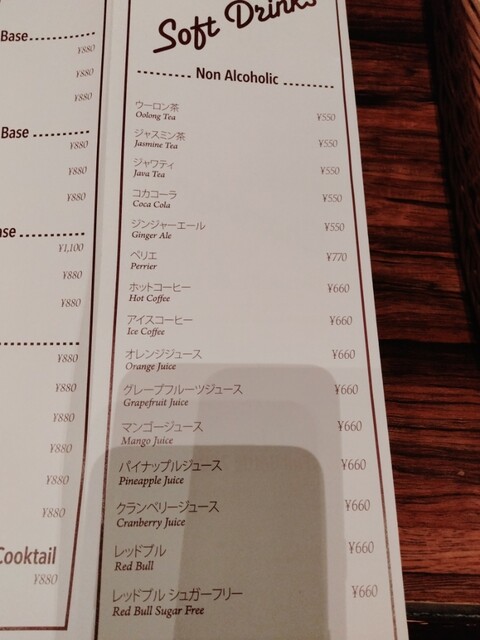 Base
¥880
¥880
¥880
Base
¥880
¥880
¥880
¥1,100
¥880
¥880
¥880
¥880
¥880
¥880
¥880
Cooktail
¥880
Soft Drinks
Non Alcoholic
ウーロン茶
Oolong Tea ¥550
ジャスミン茶
Jasmine Tea ¥550
ジャワティ
Java Tea ¥550
コカコーラ
Coca Cola ¥550
ジンジャーエール
Ginger Ale ¥550
ペリエ
Perrier ¥770
ホットコーヒー
Hot Coffee ¥660
アイスコーヒー
Ice Coffee ¥660
オレンジジュース
Orange Juice ¥660
グレープフルーツジュース
Grapefruit Juice ¥660
マンゴージュース
Mango Juice ¥660
パイナップルジュース
Pineapple Juice ¥660
クランベリージュース
Cranberry Juice ¥660
レッドブル
Red Bull ¥660
レッドブル シュガーフリー
Red Bull Sugar Free ¥660